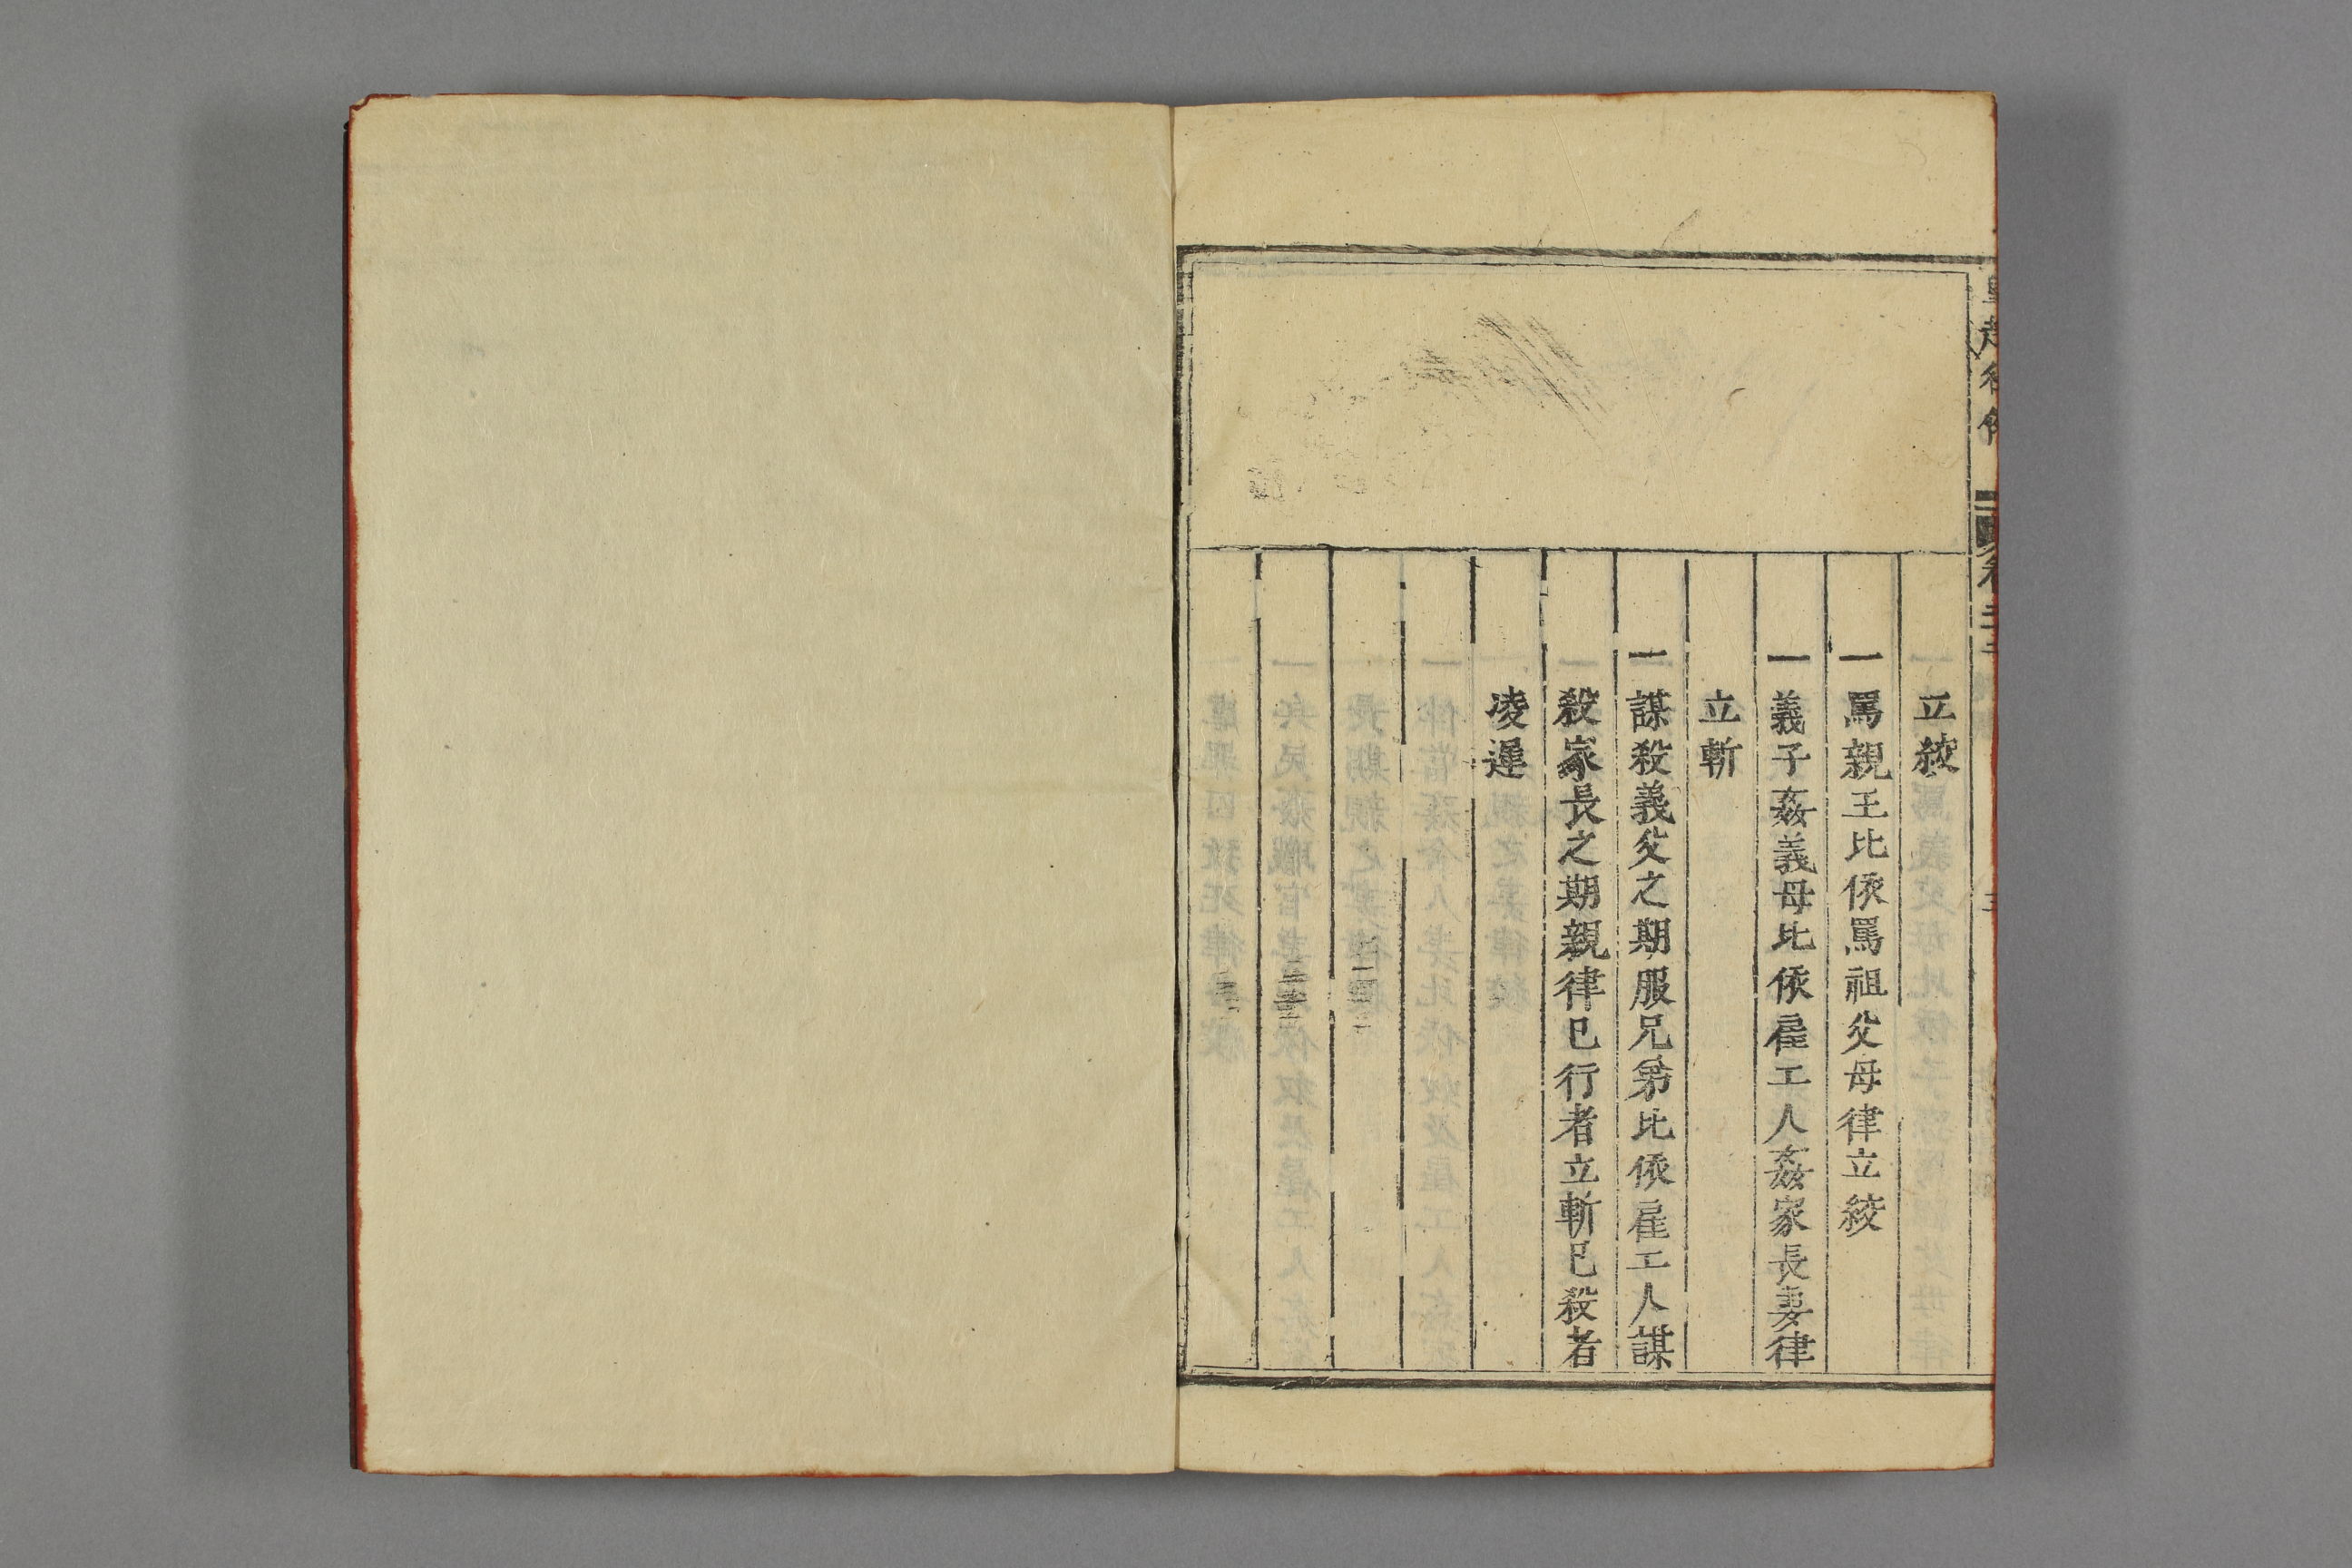 立絞
一罵親王比依罵祖父母律立絞
一義子姦義母比依雇工人姦家長妻律
立斬
一謀殺義父之期服兄弟比依雇工人謀
殺家長之期親律已行者立斬已殺者
凌遲